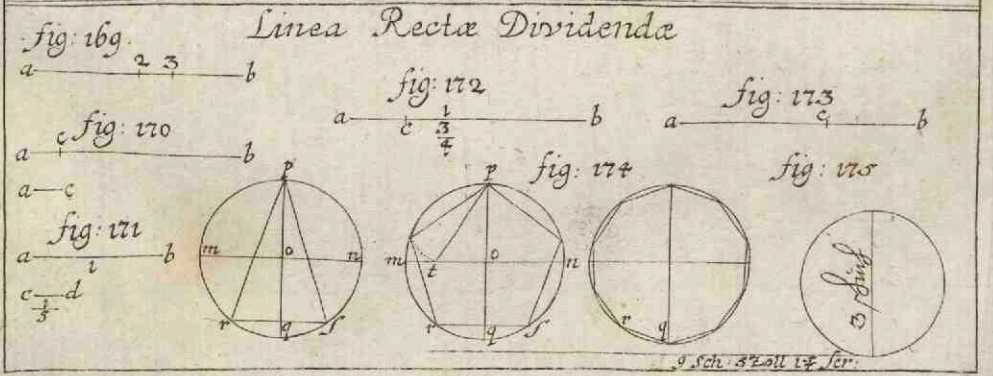 Linea Rectæ Dividendæ
fig: 169.
a 2 3 b
fig: 170
a c b
a c
fig: 171
a 1 b
c d
1/5
fig: 172
a c 1 b
3/4
fig: 173
a c b
fig: 174
p
m o n
r q s
p
m t o n
r q s
r q
fig: 175
3
9 Sch: 3 Zoll 1 4/7 Scr: